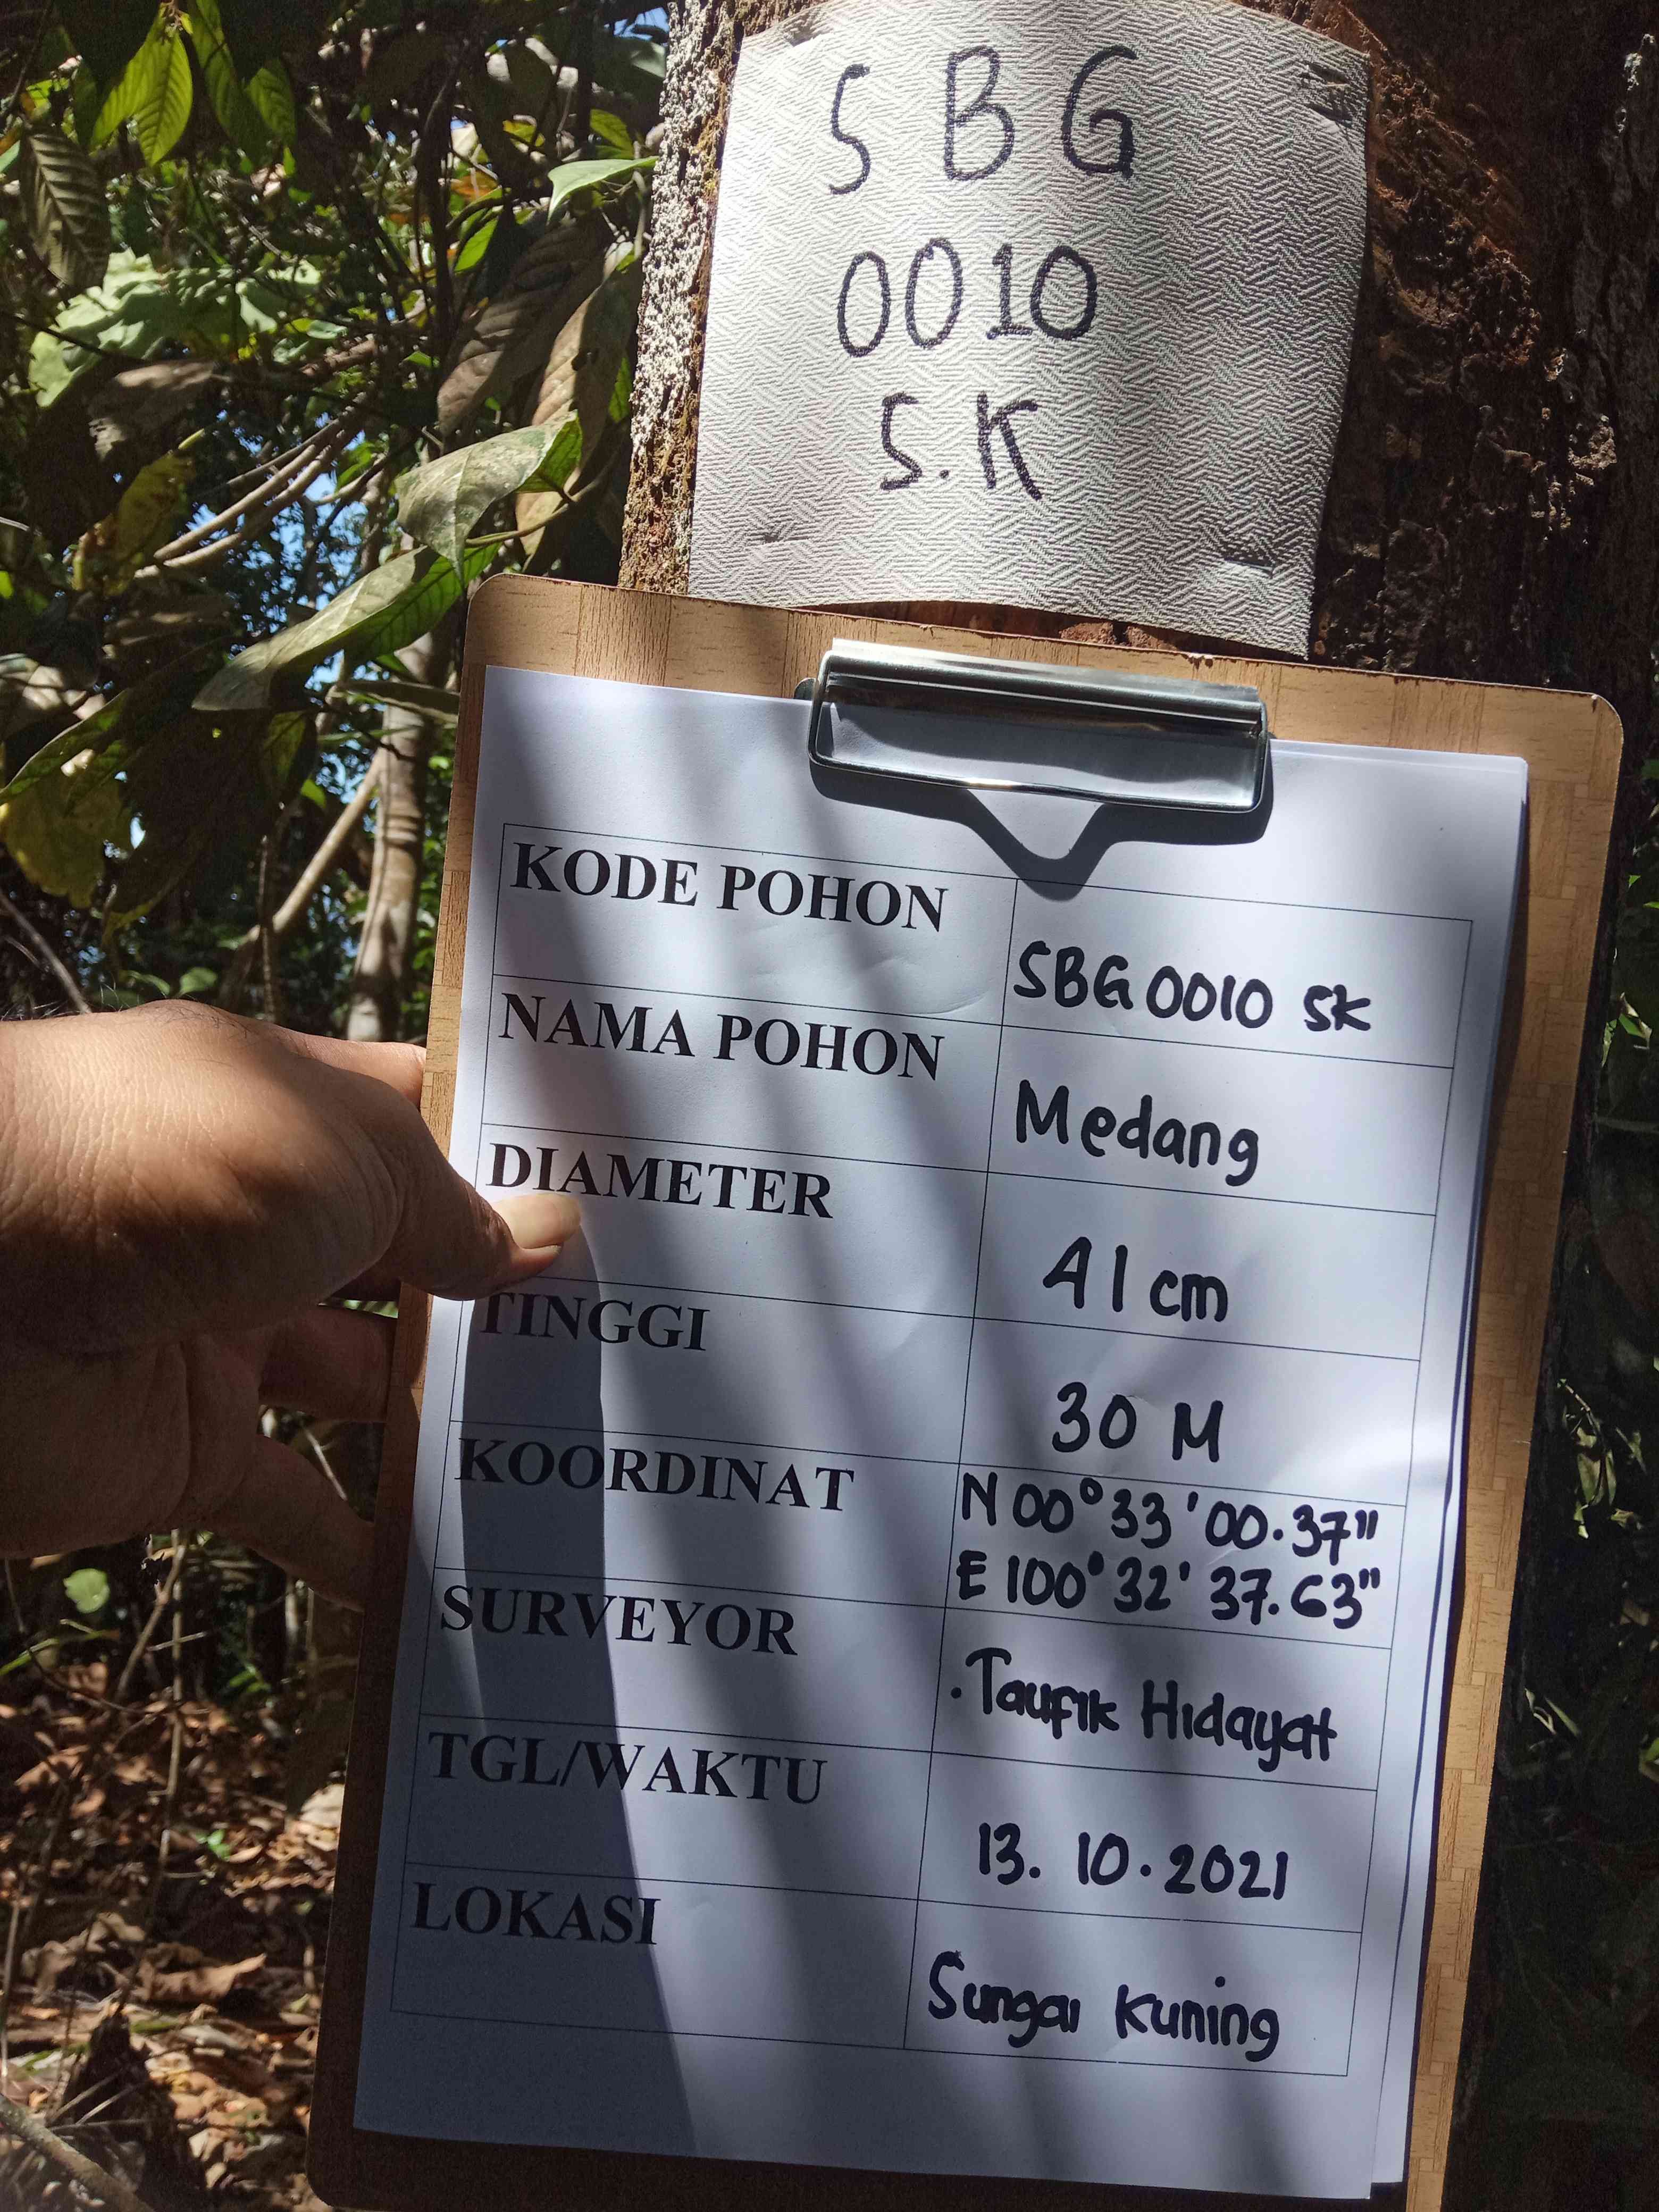 SBG
0010
S.K
KODE POHON
SBG 0010 SK
NAMA POHON
Medang
DIAMETER
41 cm
TINGGI
30 M
KOORDINAT
N 00°33'00.37"
E 100°32'37.63"
SURVEYOR
. Taufik Hidayat
TGL/WAKTU
13. 10. 2021
LOKASI
Sungai Kuning